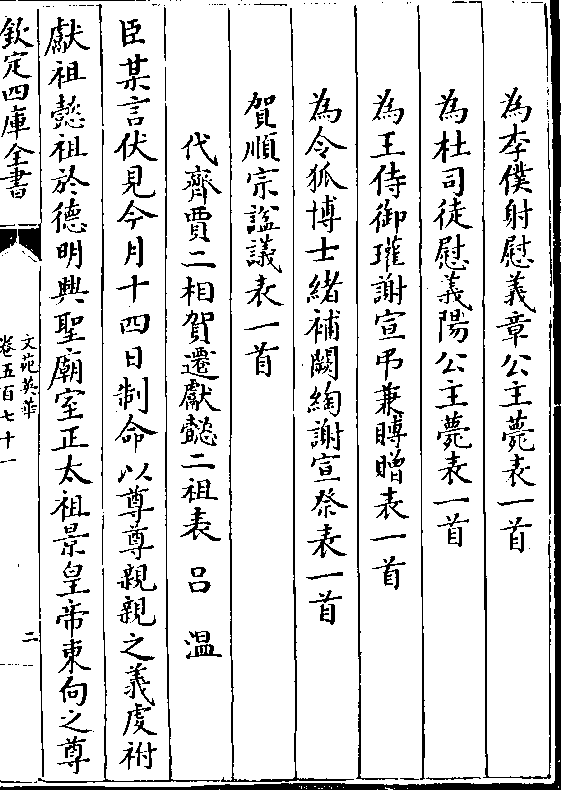 為李僕射慰義章公主薨表一首
為杜司徒慰義陽公主薨表一首
為王侍御瓘謝宣弔兼賻贈表一首
為令狐博士緒補闕綯謝宣祭表一首
賀順宗諡議表一首
代齊賈二相賀遷獻懿二祖表 呂温
臣某言伏見今月十四日制命以尊尊親親之義虔祔
獻祖懿祖於德明興聖廟室正太祖景皇帝東向之尊
欽定四庫全書
文苑英華
卷五百七十一
二